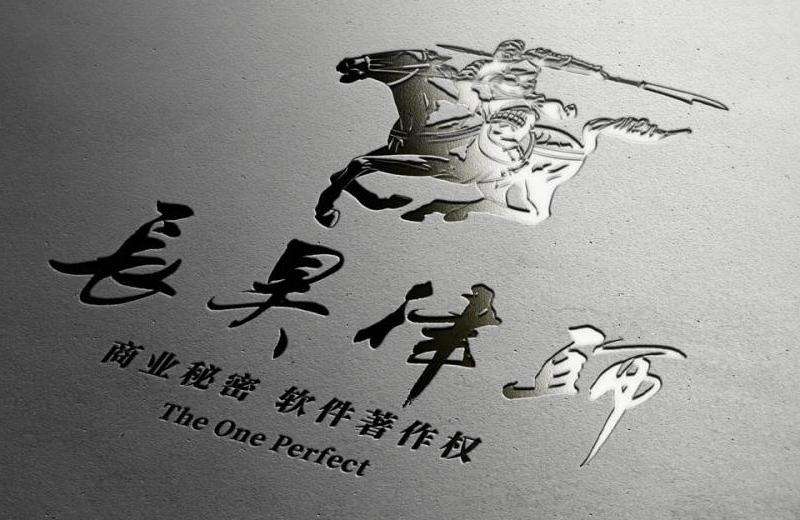 長昊律師
商业秘密 软件著作权
The One Perfect